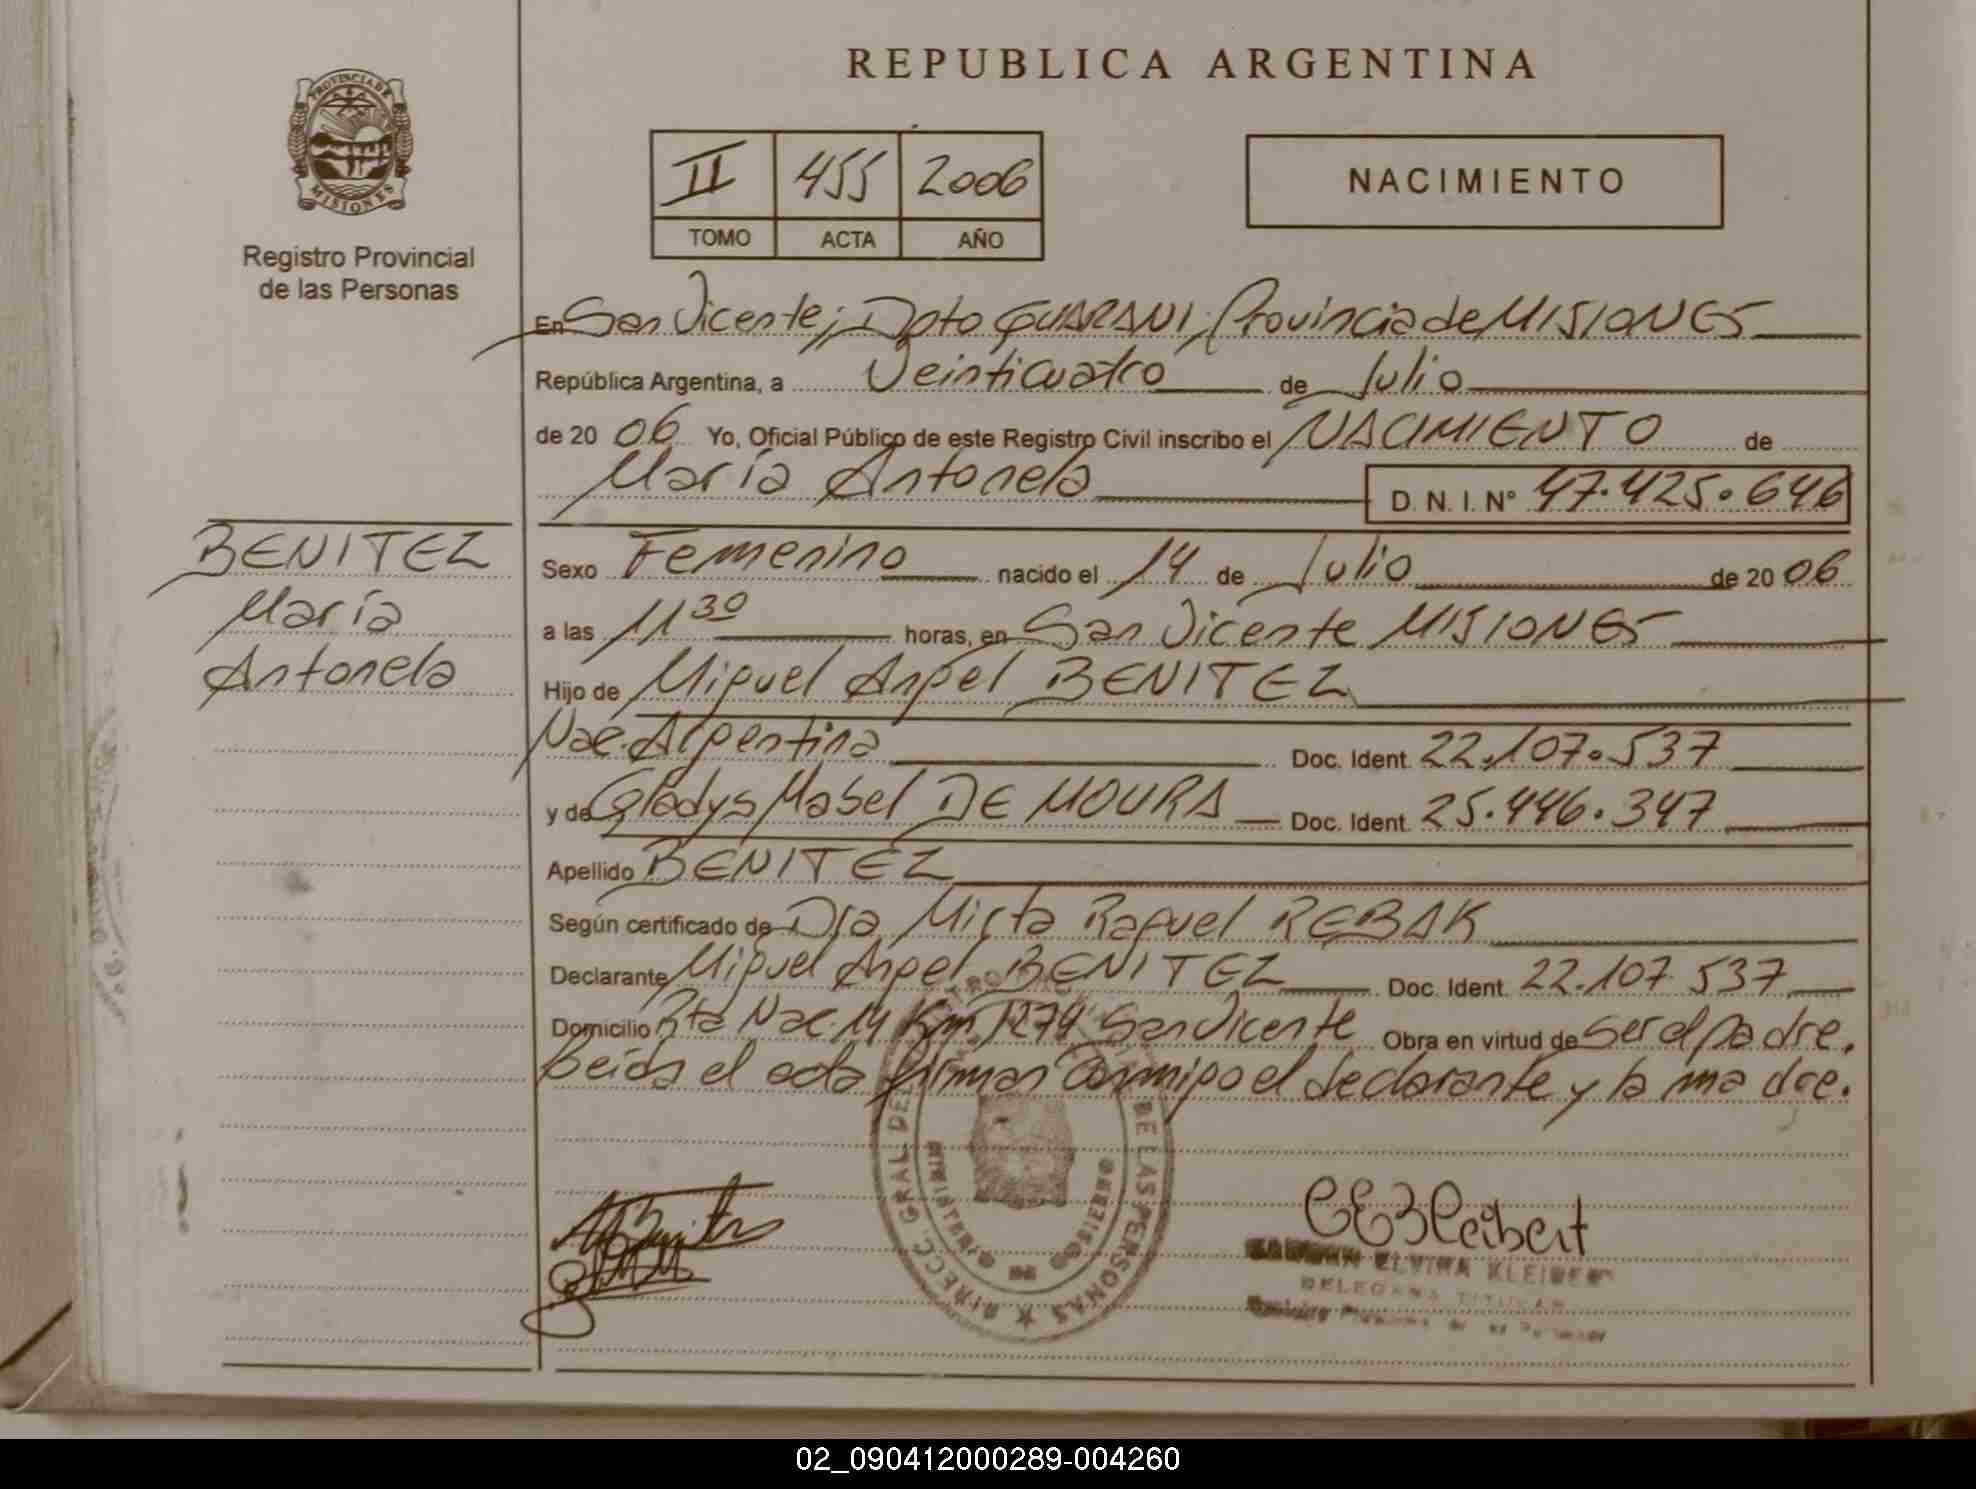 REPUBLICA ARGENTINA
PROVINCIA DE
MISIONES
Registro Provincial
de las Personas
II 455 2006
TOMO ACTA AÑO
NACIMIENTO
En San Vicente, Dpto GUARANI, Provincia de MISIONES
República Argentina, a Veinticuatro de Julio
de 20 06 Yo, Oficial Público de este Registro Civil inscribo el NACIMIENTO de
María Antonela D. N. I. Nº 47.425.646
BENITEZ
María
Antonela
Sexo Femenino nacido el 14 de Julio de 20 06
a las 11 30 horas, en San Vicente MISIONES
Hijo de Miguel Angel BENITEZ
Nac. Argentina Doc. Ident. 22.107.537
y de Gladys Mabel DE MOURA Doc. Ident. 25.446.347
Apellido BENITEZ
Según certificado de Dra Mirta Raquel REBAK
Declarante Miguel Angel BENITEZ Doc. Ident. 22.107.537
Domicilio Rta Nac. 14 Km 1274 San Vicente Obra en virtud de ser el padre.
Leída el acta firman conmigo el declarante y la madre.
DIRECC. GRAL DEL DE LAS PERSONAS
MINISTERIO DE GOBIERNO
ELVIRA
DELEGADA TITULAR
02_090412000289-004260